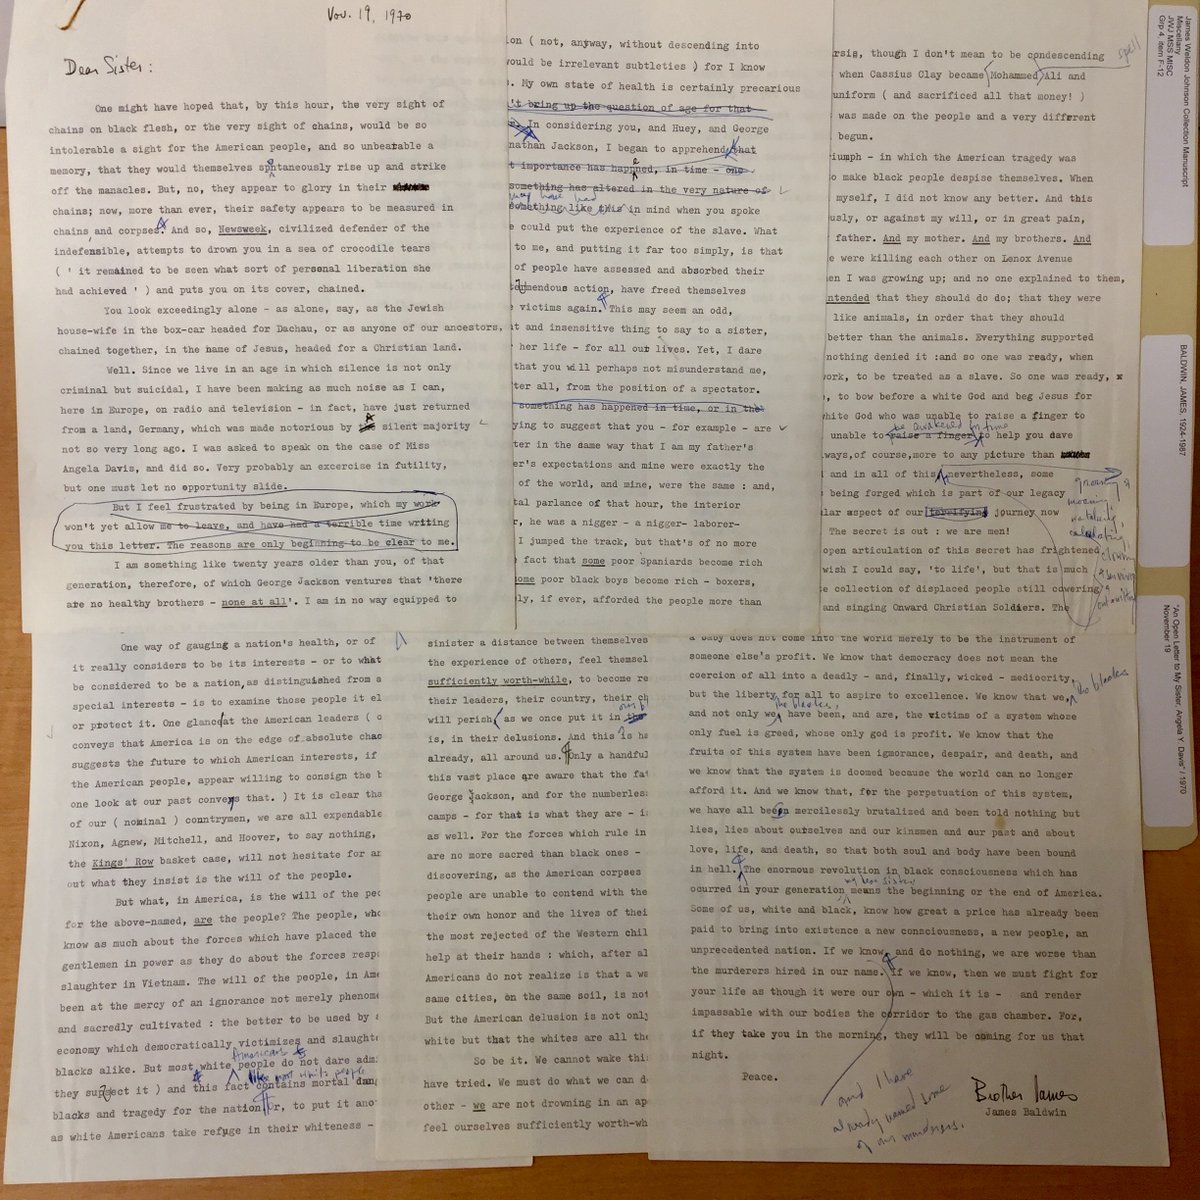 Nov. 19, 1970
Dear Sister:
One might have hoped that, by this hour, the very sight of
chains on black flesh, or the very sight of chains, would be so
intolerable a sight for the American people, and so unbearable a
memory, that they would themselves spontaneously rise up and strike
off the manacles. But, no, they appear to glory in their
chains; now, more than ever, their safety appears to be measured in
chains and corpses. And so, Newsweek, civilized defender of the
indefensible, attempts to drown you in a sea of crocodile tears
( ' it remained to be seen what sort of personal liberation she
had achieved ' ) and puts you on its cover, chained.
You look exceedingly alone - as alone, say, as the Jewish
house-wife in the box-car headed for Dachau, or as anyone of our ancestors,
chained together, in the name of Jesus, headed for a Christian land.
Well. Since we live in an age in which silence is not only
criminal but suicidal, I have been making as much noise as I can,
here in Europe, on radio and television - in fact, have just returned
from a land, Germany, which was made notorious by A silent majority
not so very long ago. I was asked to speak on the case of Miss
Angela Davis, and did so. Very probably an excercise in futility,
but one must let no opportunity slide.
But I feel frustrated by being in Europe, which my work
won't yet allow me to leave, and have had a terrible time writing
you this letter. The reasons are only beginning to be clear to me.
I am something like twenty years older than you, of that
generation, therefore, of which George Jackson ventures that 'there
are no healthy brothers - none at all'. I am in no way equipped to
ion ( not, anyway, without descending into
ould be irrelevant subtleties ) for I know
. My own state of health is certainly precarious
't bring up the question of age for that
In considering you, and Huey, and George
nathan Jackson, I began to apprehend that
t importance has happened, in time - one
something has altered in the very nature of
may have had
something like this in mind when you spoke
e could put the experience of the slave. What
to me, and putting it far too simply, is that
of people have assessed and absorbed their
mendous action, have freed themselves
e victims again. This may seem an odd,
t and insensitive thing to say to a sister,
her life - for all our lives. Yet, I dare
that you will perhaps not misunderstand me,
ter all, from the position of a spectator.
something has happened in time, or in the
ying to suggest that you - for example - are
ter in the same way that I am my father's
er's expectations and mine were exactly the
of the world, and mine, were the same : and,
tal parlance of that hour, the interior
r, he was a nigger - a nigger- laborer-
I jumped the track, but that's of no more
fact that some poor Spaniards become rich
ome poor black boys become rich - boxers,
ly, if ever, afforded the people more than
rsis, though I don't mean to be condescending
spell
when Cassius Clay became Mohammed Ali and
uniform ( and sacrificed all that money! )
was made on the people and a very different
begun.
riumph - in which the American tragedy was
o make black people despise themselves. When
myself, I did not know any better. And this
usly, or against my will, or in great pain,
father. And my mother. And my brothers. And
e were killing each other on Lenox Avenue
en I was growing up; and no one explained to them,
ntended that they should do so; that they were
like animals, in order that they should
better than the animals. Everything supported
nothing denied it :and so one was ready, when
work, to be treated as a slave. So one was ready,
, to bow before a white God and beg Jesus for
white God who was unable to raise a finger to
be awakened in time
unable to raise a finger to help you dave
ways,of course,more to any picture than
and in all of this, nevertheless, some
being forged which is part of our legacy
lar aspect of our terrifying journey now
The secret is out : we are men!
open articulation of this secret has frightened
wish I could say, 'to life', but that is much
e collection of displaced people still cowering
and singing Onward Christian Soldiers. The
groaning &
moaning,
watching,
calculating,
clowning
surviving
& outwitting
One way of gauging a nation's health, or of
it really considers to be its interests - or to what
be considered to be a nation,as distinguished from a
special interests - is to examine those people it el
or protect it. One glance at the American leaders ( o
conveys that America is on the edge of absolute chao
suggests the future to which American interests, if
the American people, appear willing to consign the b
one look at our past conveys that. ) It is clear tha
of our ( nominal ) countrymen, we are all expendable
Nixon, Agnew, Mitchell, and Hoover, to say nothing,
the Kings' Row basket case, will not hesitate for an
out what they insist is the will of the people.
But what, in America, is the will of the peo
for the above-named, are the people? The people, who
know as much about the forces which have placed the
gentlemen in power as they do about the forces resp
slaughter in Vietnam. The will of the people, in Ame
been at the mercy of an ignorance not merely phenome
and sacredly cultivated : the better to be used by a
economy which democratically victimizes and slaughte
blacks alike. But most white people do not dare adm
Americans
they suspect it ) and this fact contains mortal dang
most white people
blacks and tragedy for the nation. Or, to put it ano
as white Americans take refuge in their whiteness -
sinister a distance between themselves
the experience of others, feel themsel
sufficiently worth-while, to become re
their leaders, their country, their ch
will perish( as we once put it in the
our b
is, in their delusions. And this is ha
already, all around us. Only a handful
this vast place are aware that the fat
George Jackson, and for the numberles
camps - for that is what they are - i
as well. For the forces which rule in
are no more sacred than black ones -
discovering, as the American corpses
people are unable to contend with the
their own honor and the lives of thei
the most rejected of the Western chil
help at their hands : which, after al
Americans do not realize is that a wa
same cities, on the same soil, is not
But the American delusion is not only
white but that the whites are all the
So be it. We cannot wake thi
have tried. We must do what we can d
other - we are not drowning in an ap
feel ourselves sufficiently worth-wh
a baby does not come into the world merely to be the instrument of
someone else's profit. We know that democracy does not mean the
coercion of all into a deadly - and, finally, wicked - mediocrity,
but the liberty for all to aspire to excellence. We know that we, the blacks
the blacks,
and not only we have been, and are, the victims of a system whose
only fuel is greed, whose only god is profit. We know that the
fruits of this system have been ignorance, despair, and death, and
we know that the system is doomed because the world can no longer
afford it. And we know that, for the perpetuation of this system,
we have all been mercilessly brutalized and been told nothing but
lies, lies about ourselves and our kinsmen and our past and about
love, life, and death, so that both soul and body have been bound
in hell. The enormous revolution in black consciousness which has
my dear sister
ocurred in your generation means the beginning or the end of America.
Some of us, white and black, know how great a price has already been
paid to bring into existence a new consciousness, a new people, an
unprecedented nation. If we know and do nothing, we are worse than
the murderers hired in our name. If we know, then we must fight for
your life as though it were our own - which it is - and render
impassable with our bodies the corridor to the gas chamber. For,
if they take you in the morning, they will be coming for us that
night.
Peace.
and I have
already named some
of our murderers.
Brother James
James Baldwin
James Weldon Johnson Collection Manuscript
Miscellany
JWJ MSS MISC
Grp 4, item F-12
BALDWIN, JAMES, 1924-1987
"An Open Letter to My Sister, Angela Y. Davis" / 1970
November 19